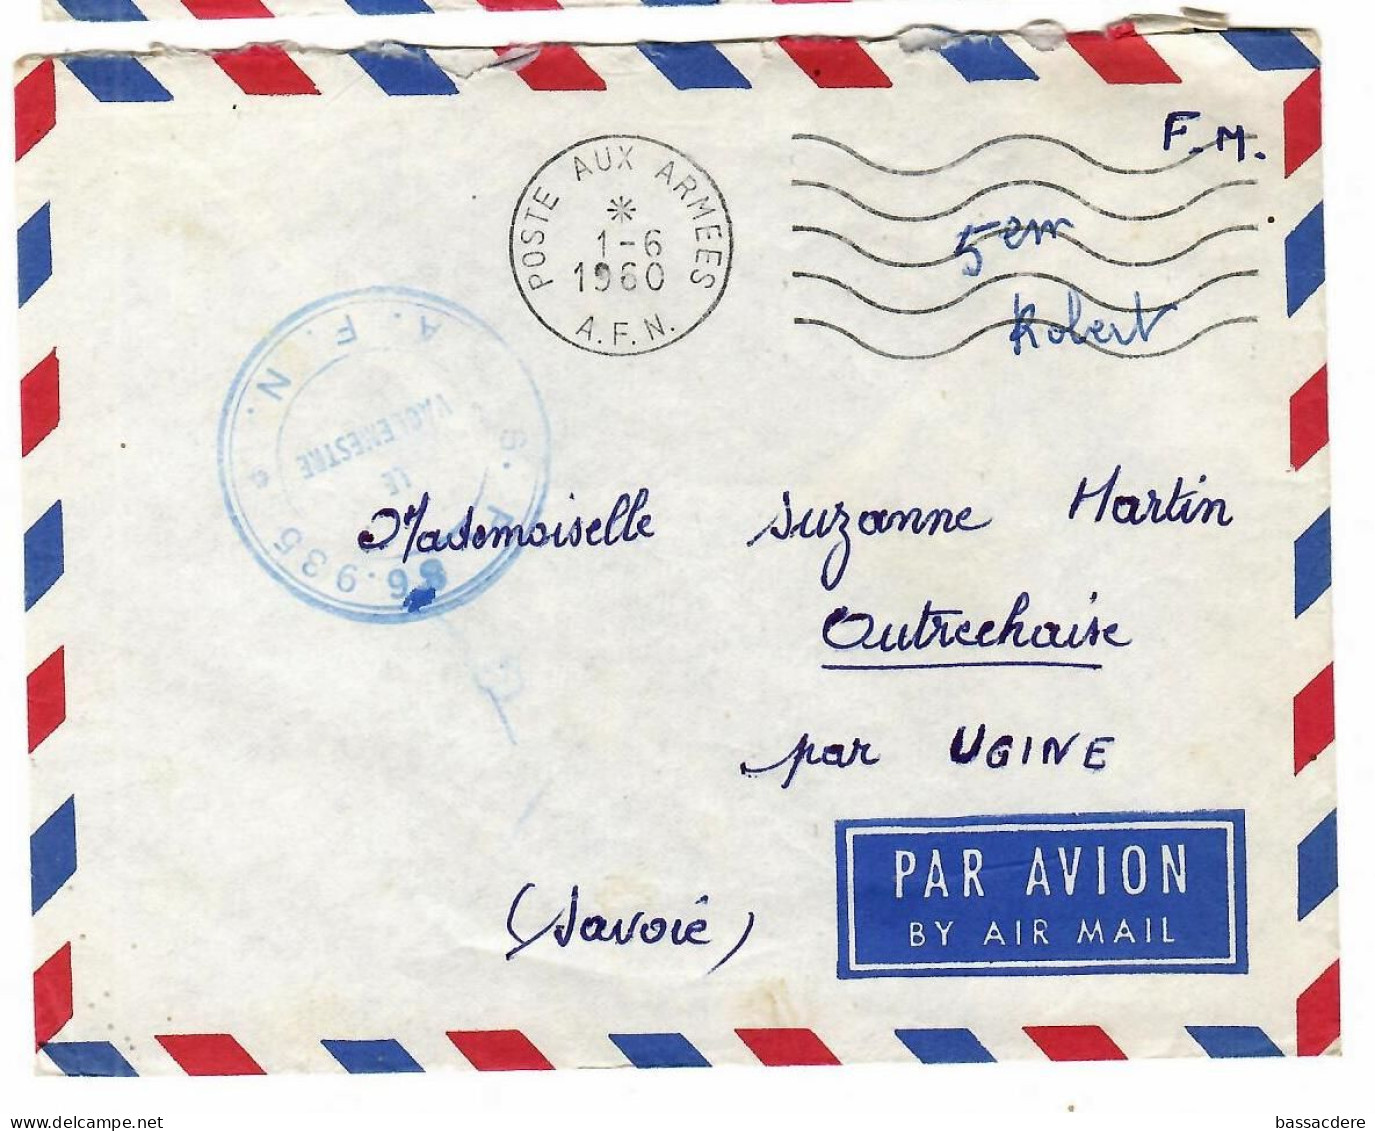 F.M.
POSTE AUX ARMEES
1-6
1960
A.F.N.
5em
Robert
S.P. 86.935
A.F.N.
LE
VAGUEMESTRE
Mademoiselle Suzanne Martin
Outrechaise
par UGINE
(Savoie)
PAR AVION
BY AIR MAIL
bassacdere